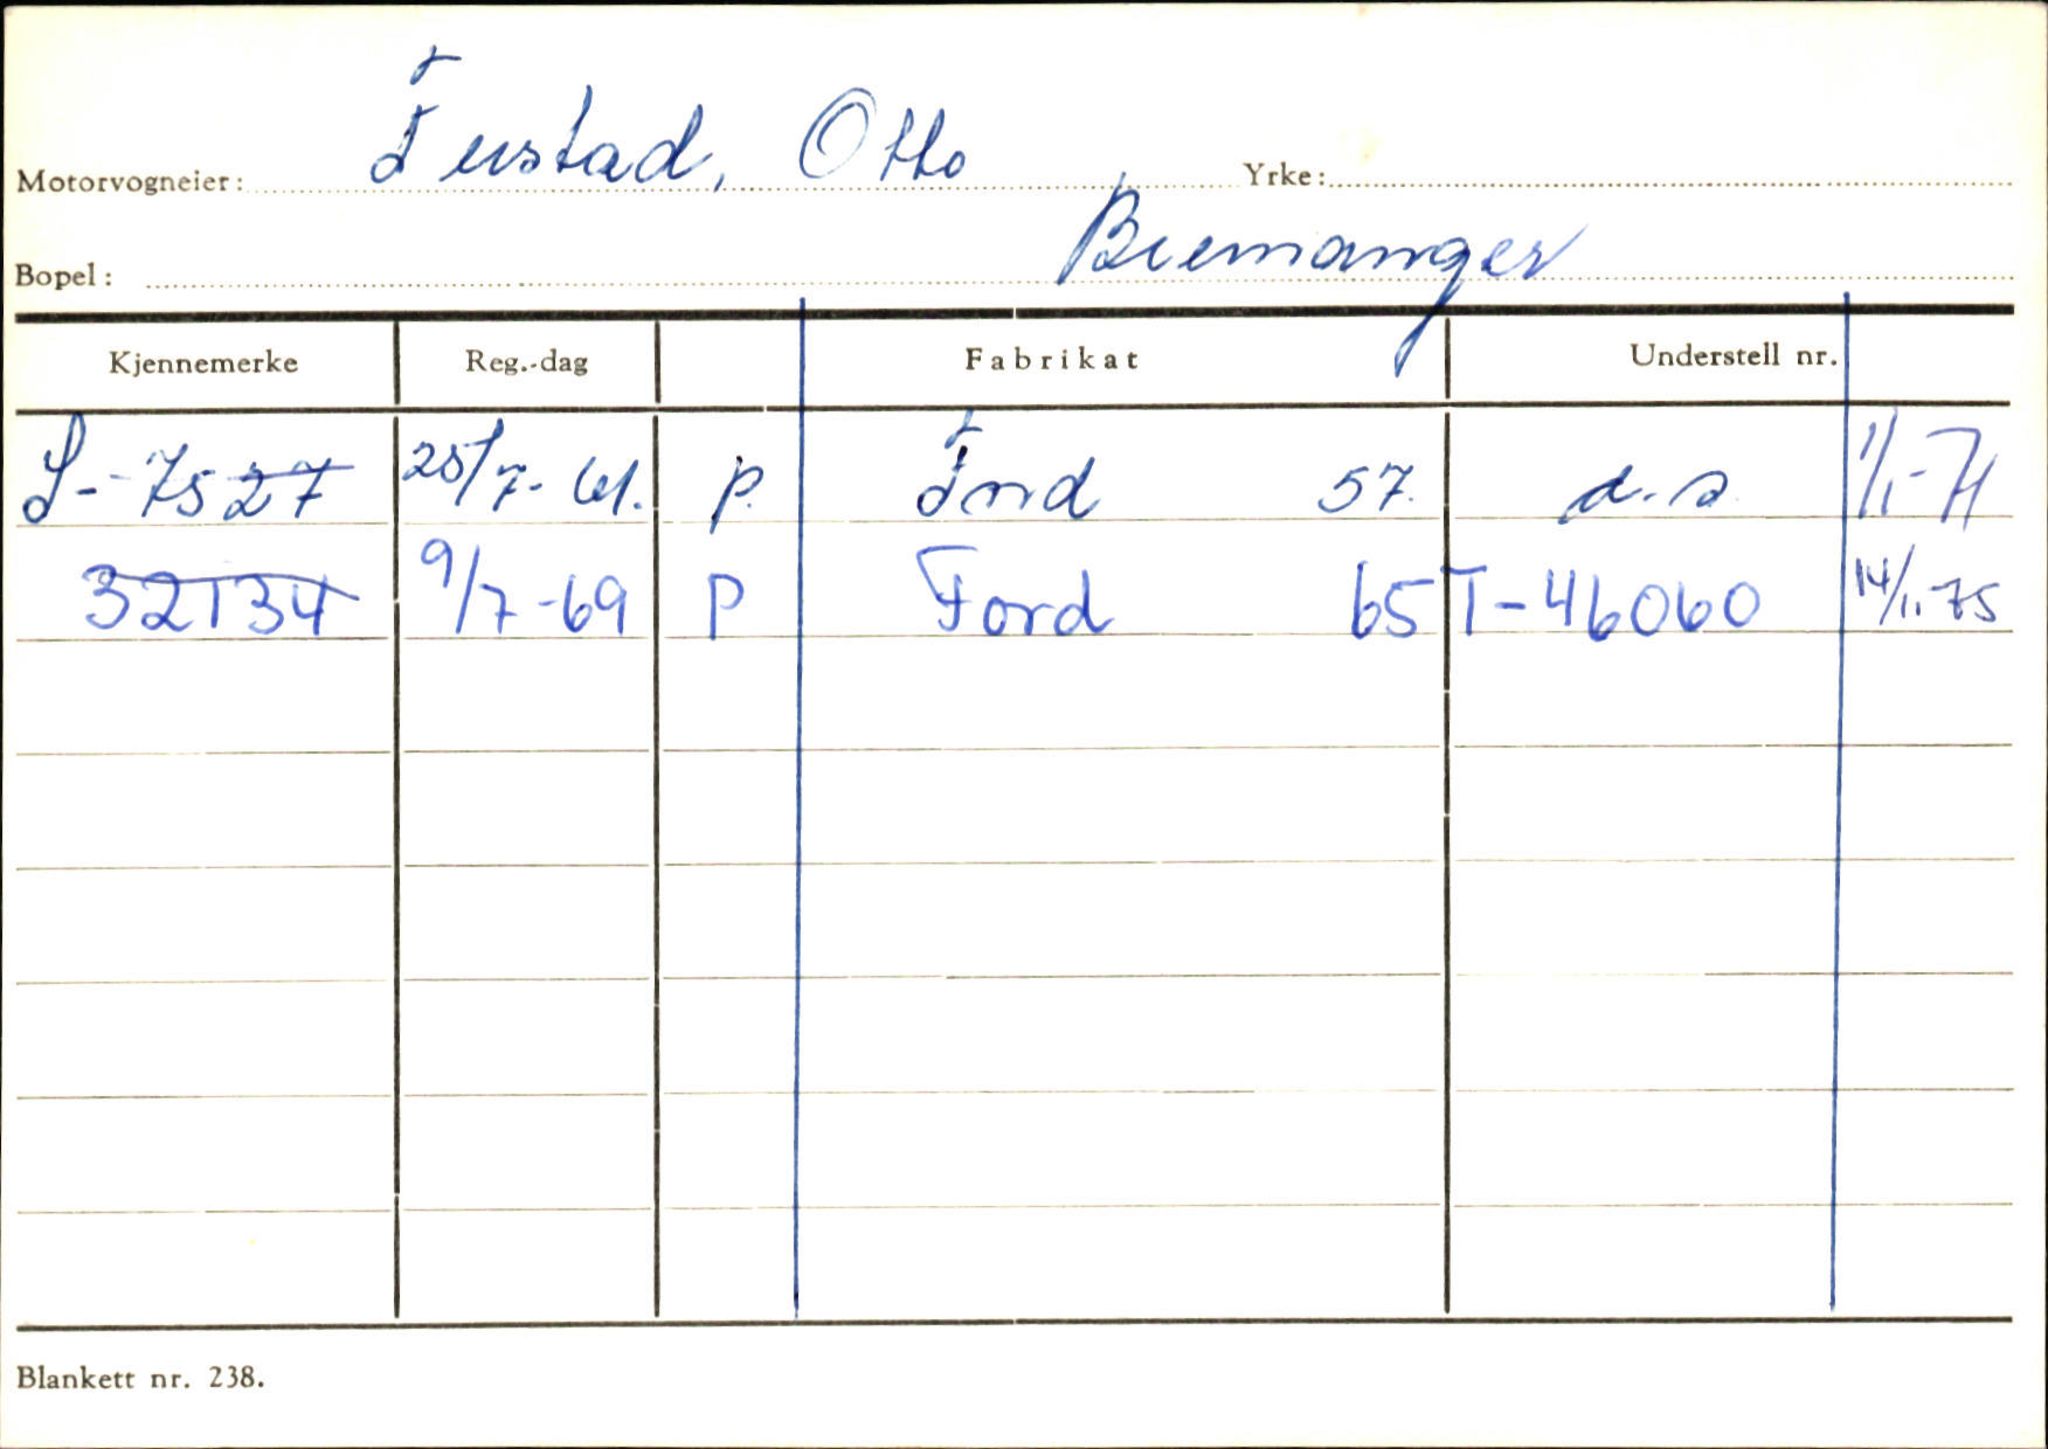 Motorvogneier: Furstad, Otto Yrke:
Bopel: Bremanger
Kjennemerke Reg.-dag Fabrikat Understell nr.
S-7527 25/7-61. p. Ford 57. d.s 1/1-71
32134 9/7-69 P Ford 65 T-46060 14/11-75
Blankett nr. 238.